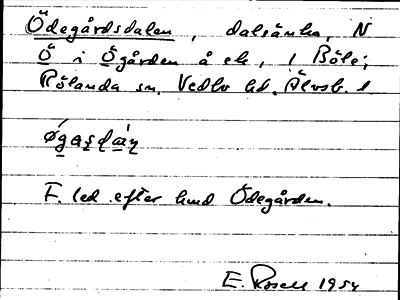 Ödegårdsdalen, dalsänka, N
Ö i Ögården å ek, i Böle;
Rölanda sn, Vedbo hd. Älvsb. l.
F. led efter hmd Ödegården.
E. Rosell 1954